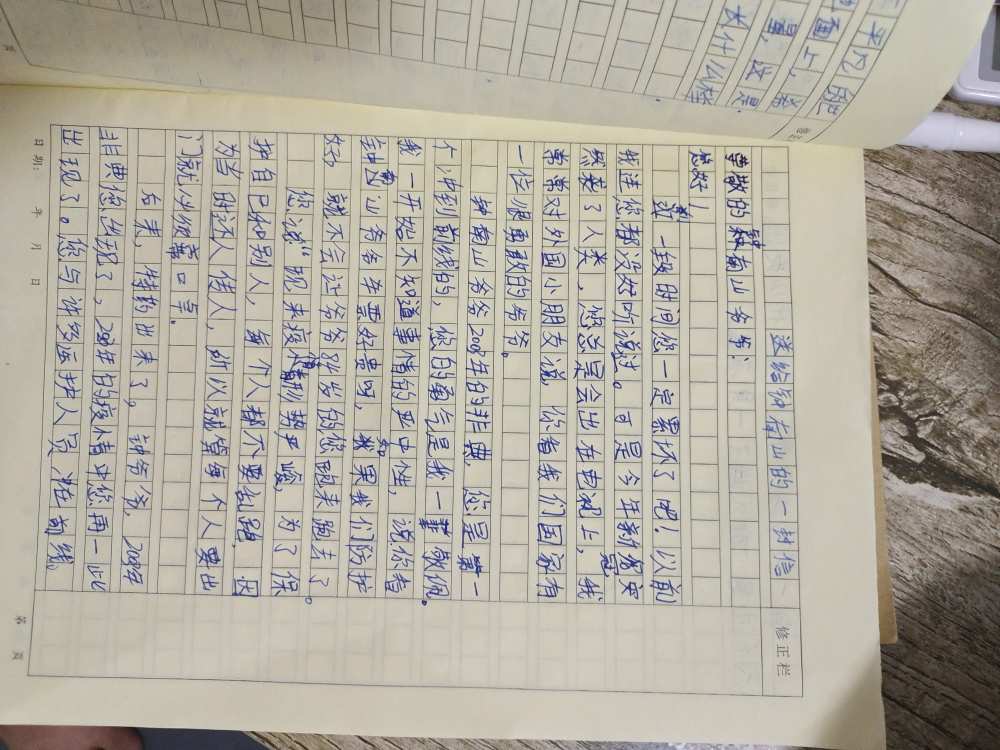 送给钟南山的一封信
尊敬的钟南山爷爷:
您好!
这一段时间您一定累坏了吧!以前
我连您都没好听说过。可是今年新冠突
然袭了人类,您总是会出在电视上,我
常常对外国小朋友说 你看我们国家有
一位很勇敢的爷爷。
钟南山爷爷2003年的非典,您是第一
个冲到前线的,您的勇气是我一 敬佩。
我一开始不知道事情的严中性,说你看
钟南山爷爷并要好贵啊,如果我们防护
好 就不会让爷爷84岁的您跑来跑去了。
您说“现来疫情形势严峻,为了保
护自己和别人,每个人都不要乱跑,因
为当的还人传人,所以就算每个人要出
门就必须带口罩.
后来,特效出来了,钟爷爷,2003年
非典您出现了,20年的疫情中您再一次
出现了。您与许多医护人员,在前线
日期: 年 月 日
修正栏
第 页
采
面上,
是
量,这是
长什么样
修正